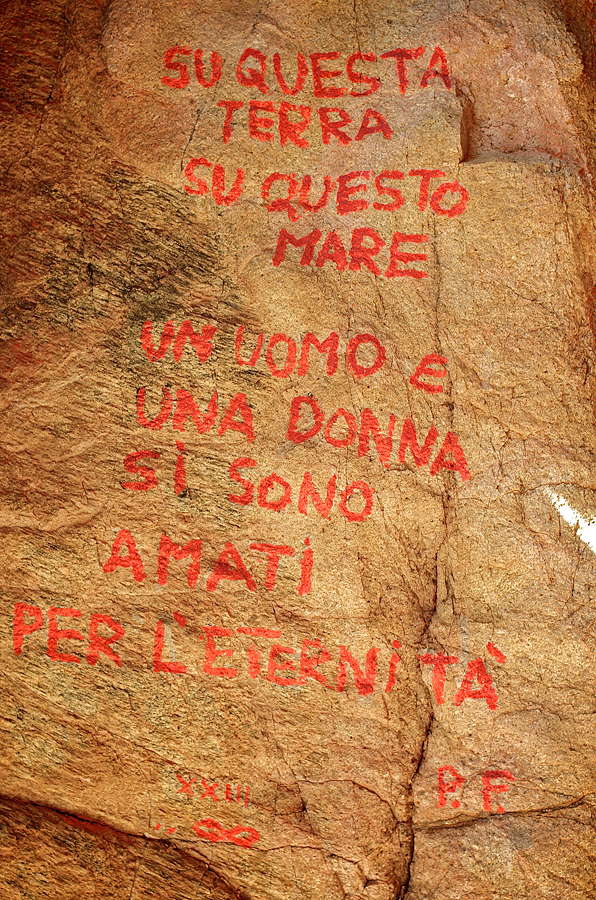 SU QUESTA
TERRA
SU QUESTO
MARE
UN UOMO E
UNA DONNA
Si SONO
AMATi
PER L'ETERNiTÀ
XXIII
P. F.
.. ∞